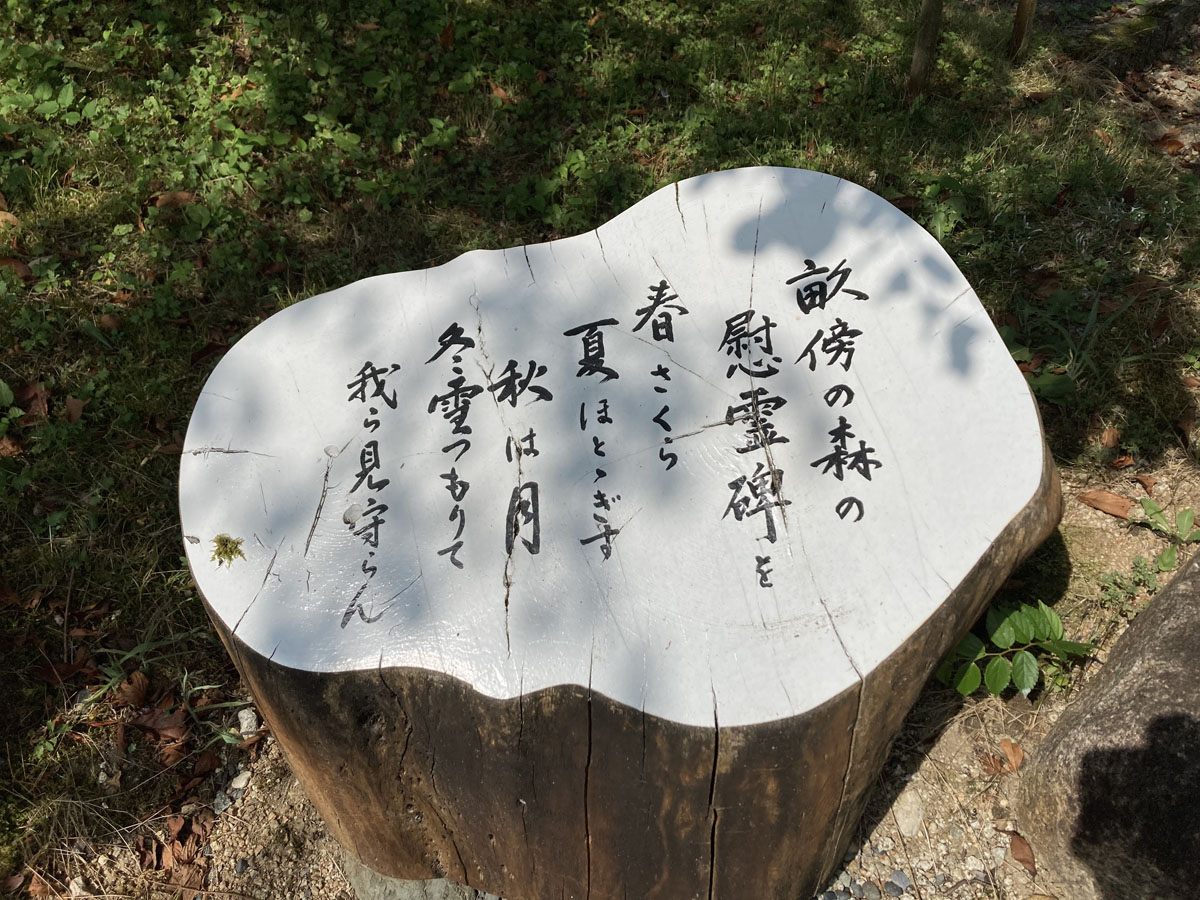 畝傍の森の
慰霊碑を
春さくら
夏ほとゝぎす
秋は月
冬雪つもりて
我ら見守らん